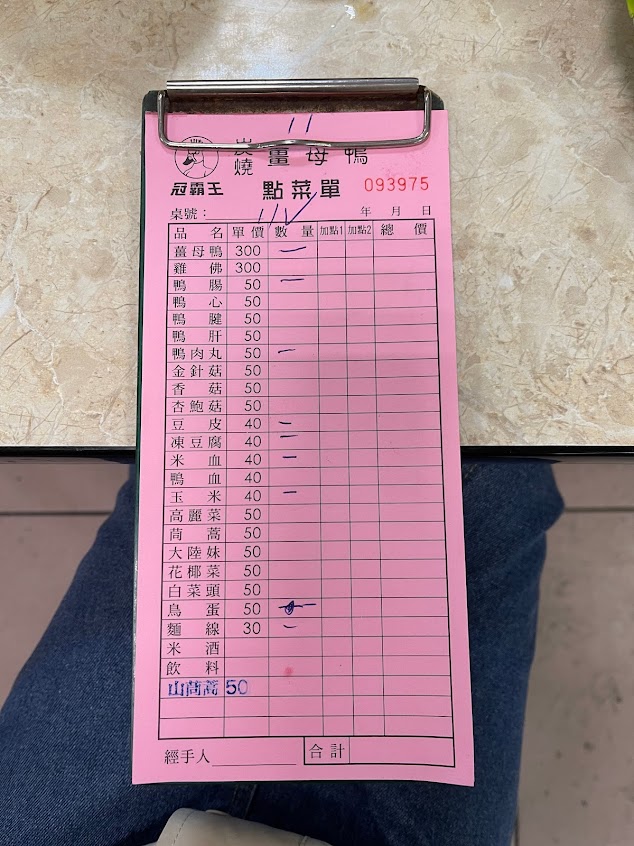 11
炭燒 薑母鴨
冠霸王 點菜單 093975
桌號： 11 年 月 日
品名 單價 數量 加點1 加點2 總價
薑母鴨 300 一
雞佛 300
鴨腸 50 一
鴨心 50
鴨腱 50
鴨肝 50
鴨肉丸 50 一
金針菇 50
香菇 50
杏鮑菇 50
豆皮 40 一
凍豆腐 40 一
米血 40 一
鴨血 40
玉米 40 一
高麗菜 50
茼蒿 50
大陸妹 50
花椰菜 50
白菜頭 50
鳥蛋 50 一
麵線 30 一
米酒
飲料
山茼蒿 50
經手人 合計